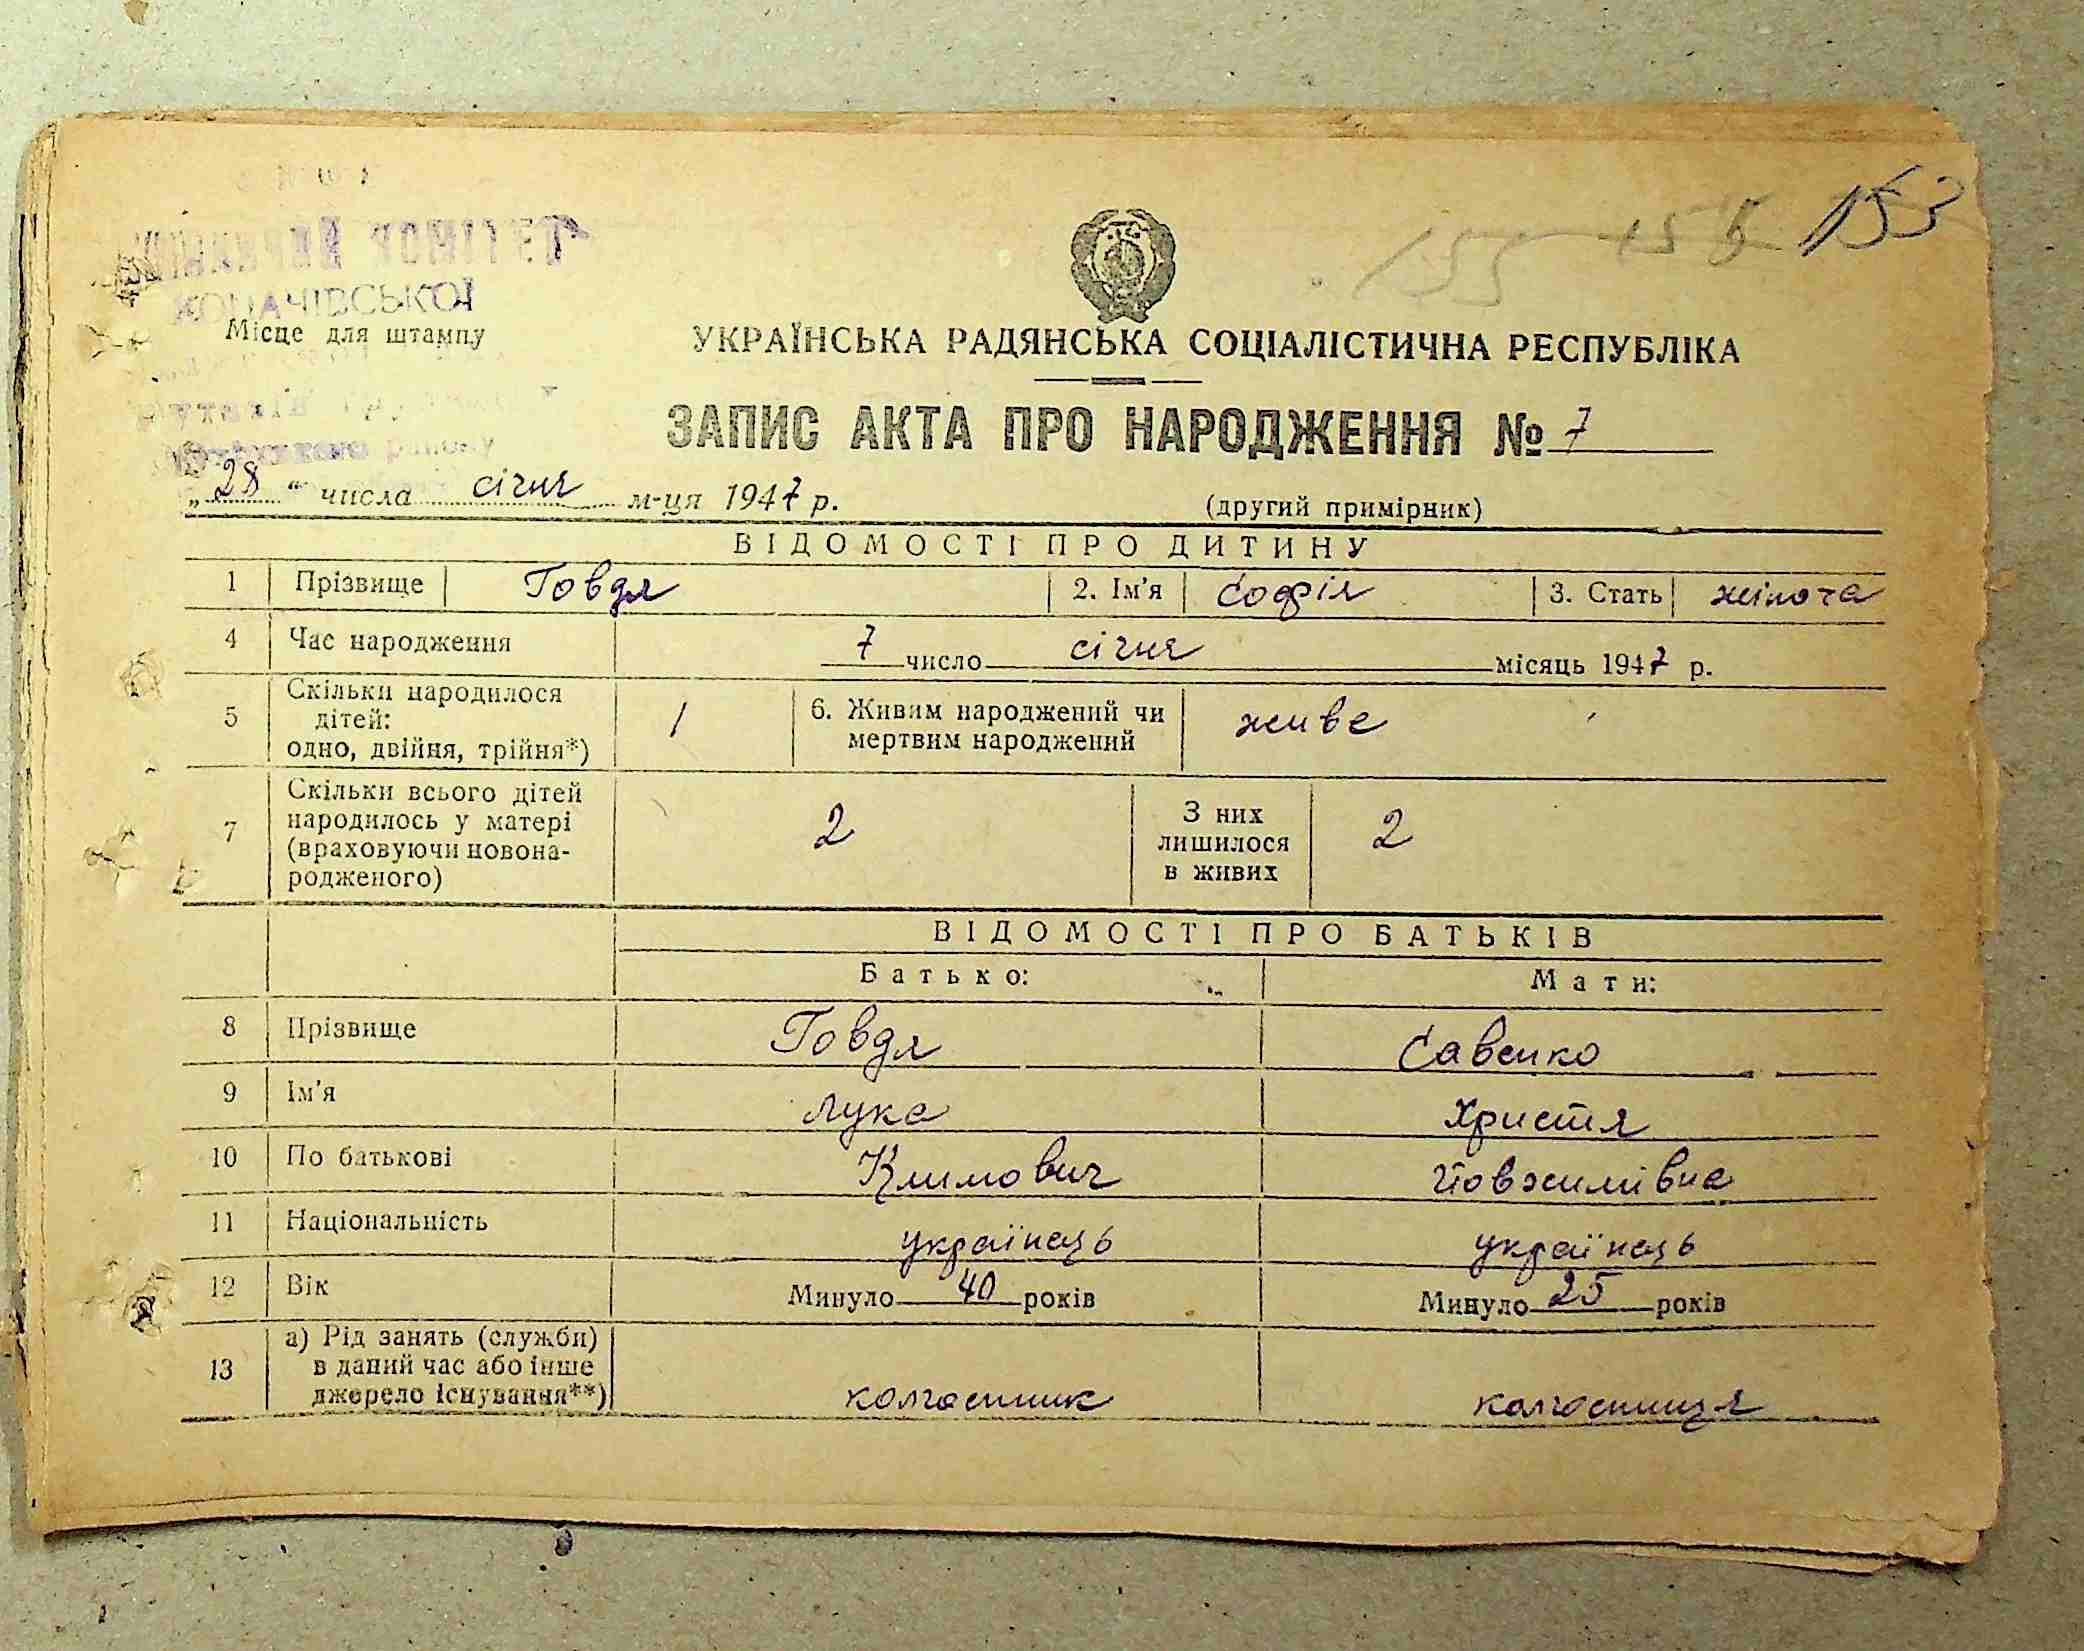 155 155 153
КОПАЧІВСЬКОЇ
Місце для штампу
УКРАЇНСЬКА РАДЯНСЬКА СОЦІАЛІСТИЧНА РЕСПУБЛІКА
ЗАПИС АКТА ПРО НАРОДЖЕННЯ № 7
району
„28“ числа січня м-ця 1947 р. (другий примірник)
ВІДОМОСТІ ПРО ДИТИНУ
1 Прізвище Говдя 2. Ім'я Софія 3. Стать жіноча
4 Час народження 7 число січня місяць 1947 р.
5 Скільки народилося дітей: одно, двійня, трійня*) 1 6. Живим народжений чи мертвим народжений живе
7 Скільки всього дітей народилось у матері (враховуючи новона-родженого) 2 З них лишилося в живих 2
ВІДОМОСТІ ПРО БАТЬКІВ
Батько: Мати:
8 Прізвище Говдя Савенко
9 Ім'я Лука Христя
10 По батькові Климович Йовхимівна
11 Національність українець українець
12 Вік Минуло 40 років Минуло 25 років
13 а) Рід занять (служби) в даний час або інше джерело існування**) колгоспник колгоспниця